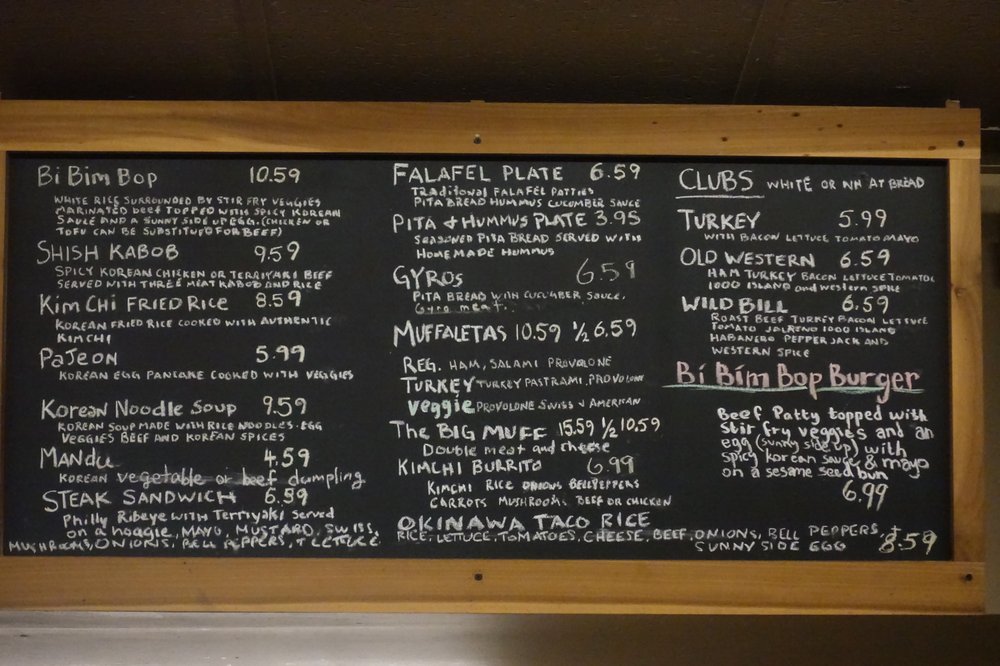 Bi Bim Bop 10.59
WHITE RICE SURROUNDED BY STIR FRY VEGGIES
MARINATED BEEF TOPPED WITH SPICY KOREAN
SAUCE AND A SUNNY SIDE UP EGG. (CHICKEN OR
TOFU CAN BE SUBSTITUTED FOR BEEF)
SHISH KABOB 9.59
SPICY KOREAN CHICKEN OR TERRIYAKI BEEF
SERVED WITH THREE MEAT KABOB AND RICE
Kim Chi FRIED RICE 8.59
KOREAN FRIED RICE COOKED WITH AUTHENTIC
KIMCHI
PaJeon 5.99
KOREAN EGG PANCAKE COOKED WITH VEGGIES
Korean Noodle Soup 9.59
KOREAN SOUP MADE WITH RICE NOODLES. EGG
VEGGIES BEEF AND KOREAN SPICES
MANDU 4.59
KOREAN vegetable or beef dumpling
STEAK SANDWICH 6.59
Philly Ribeye WITH Terriyaki Served
on a hoagie, MAYO, MUSTARD, SWISS,
MUSHROOMS, ONIONS, BELL PEPPERS, + LETTUCE
FALAFEL PLATE 6.59
Traditional FALAFEL PATTIES
PITA BREAD HUMMUS CUCUMBER SAUCE
PITA + HUMMUS PLATE 3.95
SEASONED PITA BREAD SERVED WITH
HOMEMADE HUMMUS
GYROS 6.59
PITA BREAD WITH CUCUMBER SAUCE.
Gyro meat.
MUFFALETAS 10.59 ½ 6.59
REG. HAM, SALAMI PROVOLONE
TURKEY TURKEY PASTRAMI, PROVOLONE
veggie PROVOLONE SWISS + AMERICAN
The BIG MUFF 15.59 ½ 10.59
Double meat and cheese
KIMCHI BURRITO 6.99
KIMCHI RICE ONIONS BELL PEPPERS
CARROTS MUSHROOMS BEEF OR CHICKEN
OKINAWA TACO RICE
RICE, LETTUCE, TOMATOES, CHEESE, BEEF, ONIONS, BELL PEPPERS, +
SUNNY SIDE EGG 8.59
CLUBS WHITE OR WHEAT BREAD
TURKEY 5.99
WITH BACON LETTUCE TOMATO MAYO
OLD WESTERN 6.59
HAM TURKEY BACON LETTUCE TOMATO
1000 ISLAND and WESTERN SPICE
WILD BILL 6.59
ROAST BEEF TURKEY BACON LETTUCE
TOMATO JALPENO 1000 ISLAND
HABANERO PEPPER JACK AND
WESTERN SPICE
Bi Bim Bop Burger
Beef Patty topped with
Stir fry veggies and an
egg (sunny side up) with
spicy korean sauce & mayo
on a sesame seed bun
6.99